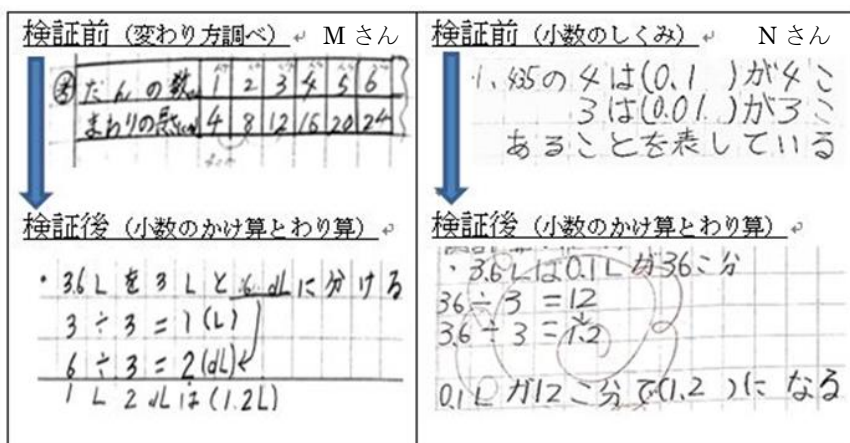 検証前（変わり方調べ） Mさん
考 だんの数 1 2 3 4 5 6
まわりの長さ(cm) 4 8 12 16 20 24
検証後（小数のかけ算とわり算）
・3.6Lを3Lと6dLに分ける
3÷3=1(L)
6÷3=2(dL)
1L2dLは(1.2L)
検証前（小数のしくみ） Nさん
1.435の4は(0.1 )が4こ
3は(0.01 )が3こ
あることを表している
検証後（小数のかけ算とわり算）
・3.6Lは0.1Lが36こ分
36÷3=12
3.6÷3=1.2
0.1Lが12こ分で(1.2 )になる